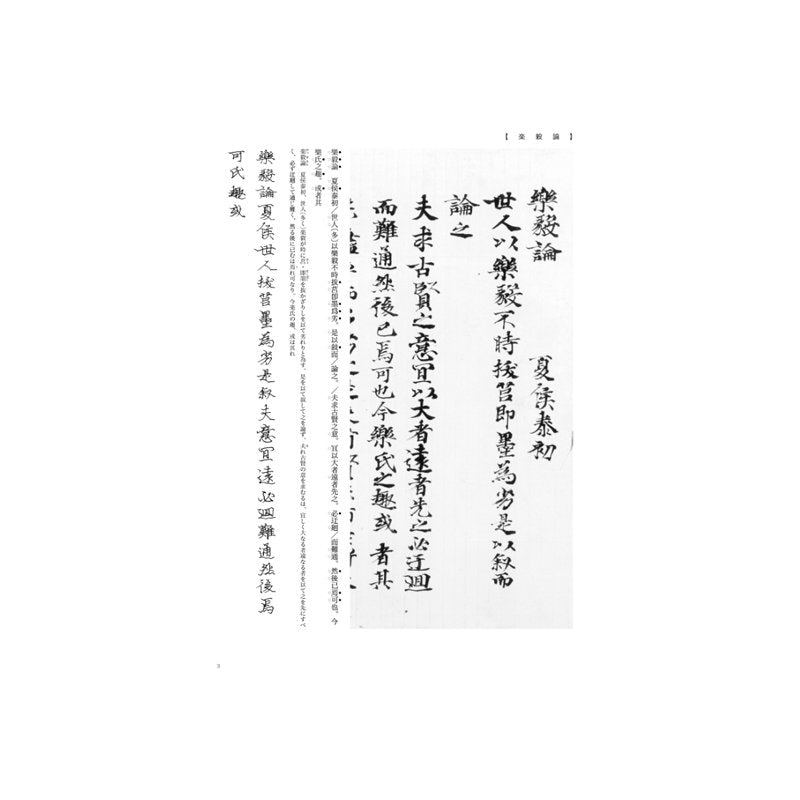 【楽毅論】
樂毅論 夏侯泰初
世人以樂毅不時拔莒即墨為劣是以叙而
論之
夫求古賢之意冝以大者遠者先之必迂迴
而難通然後已焉可也今樂氏之趣或者其
樂毅論 夏侯泰初／世人（多）以樂毅不時拔莒即墨爲劣。是以敍而／論之。／夫求古賢之意。冝以大者遠者先之。必迂廻／而難通。然後已焉可也。今
樂氏之趣。或者其
楽毅論 夏侯泰初、世人（多く）楽毅が時に莒・即墨を抜かざりしを以て劣れりと為す。是を以て叙して之を論ず。夫れ古賢の意を求むるは、宜しく大なる者遠なる者を以て之を先にすべ
く、必ず迂廻して通じ難く、然る後に已むは焉れ可なり。今楽氏の趣、或は其れ
樂毅論夏侯世人拔莒墨為劣是叙夫意冝遠必迴難通然後焉
可氏趣或
3